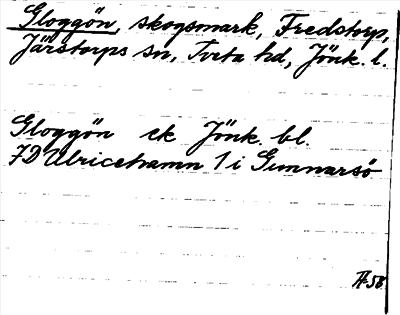 Gloggön, skogsmark, Fredstorp,
Järstorps sn, Tveta hd, Jönk. l.
Gloggön ek Jönk. bl.
7D Ulricehamn 1 i Gunnarsö